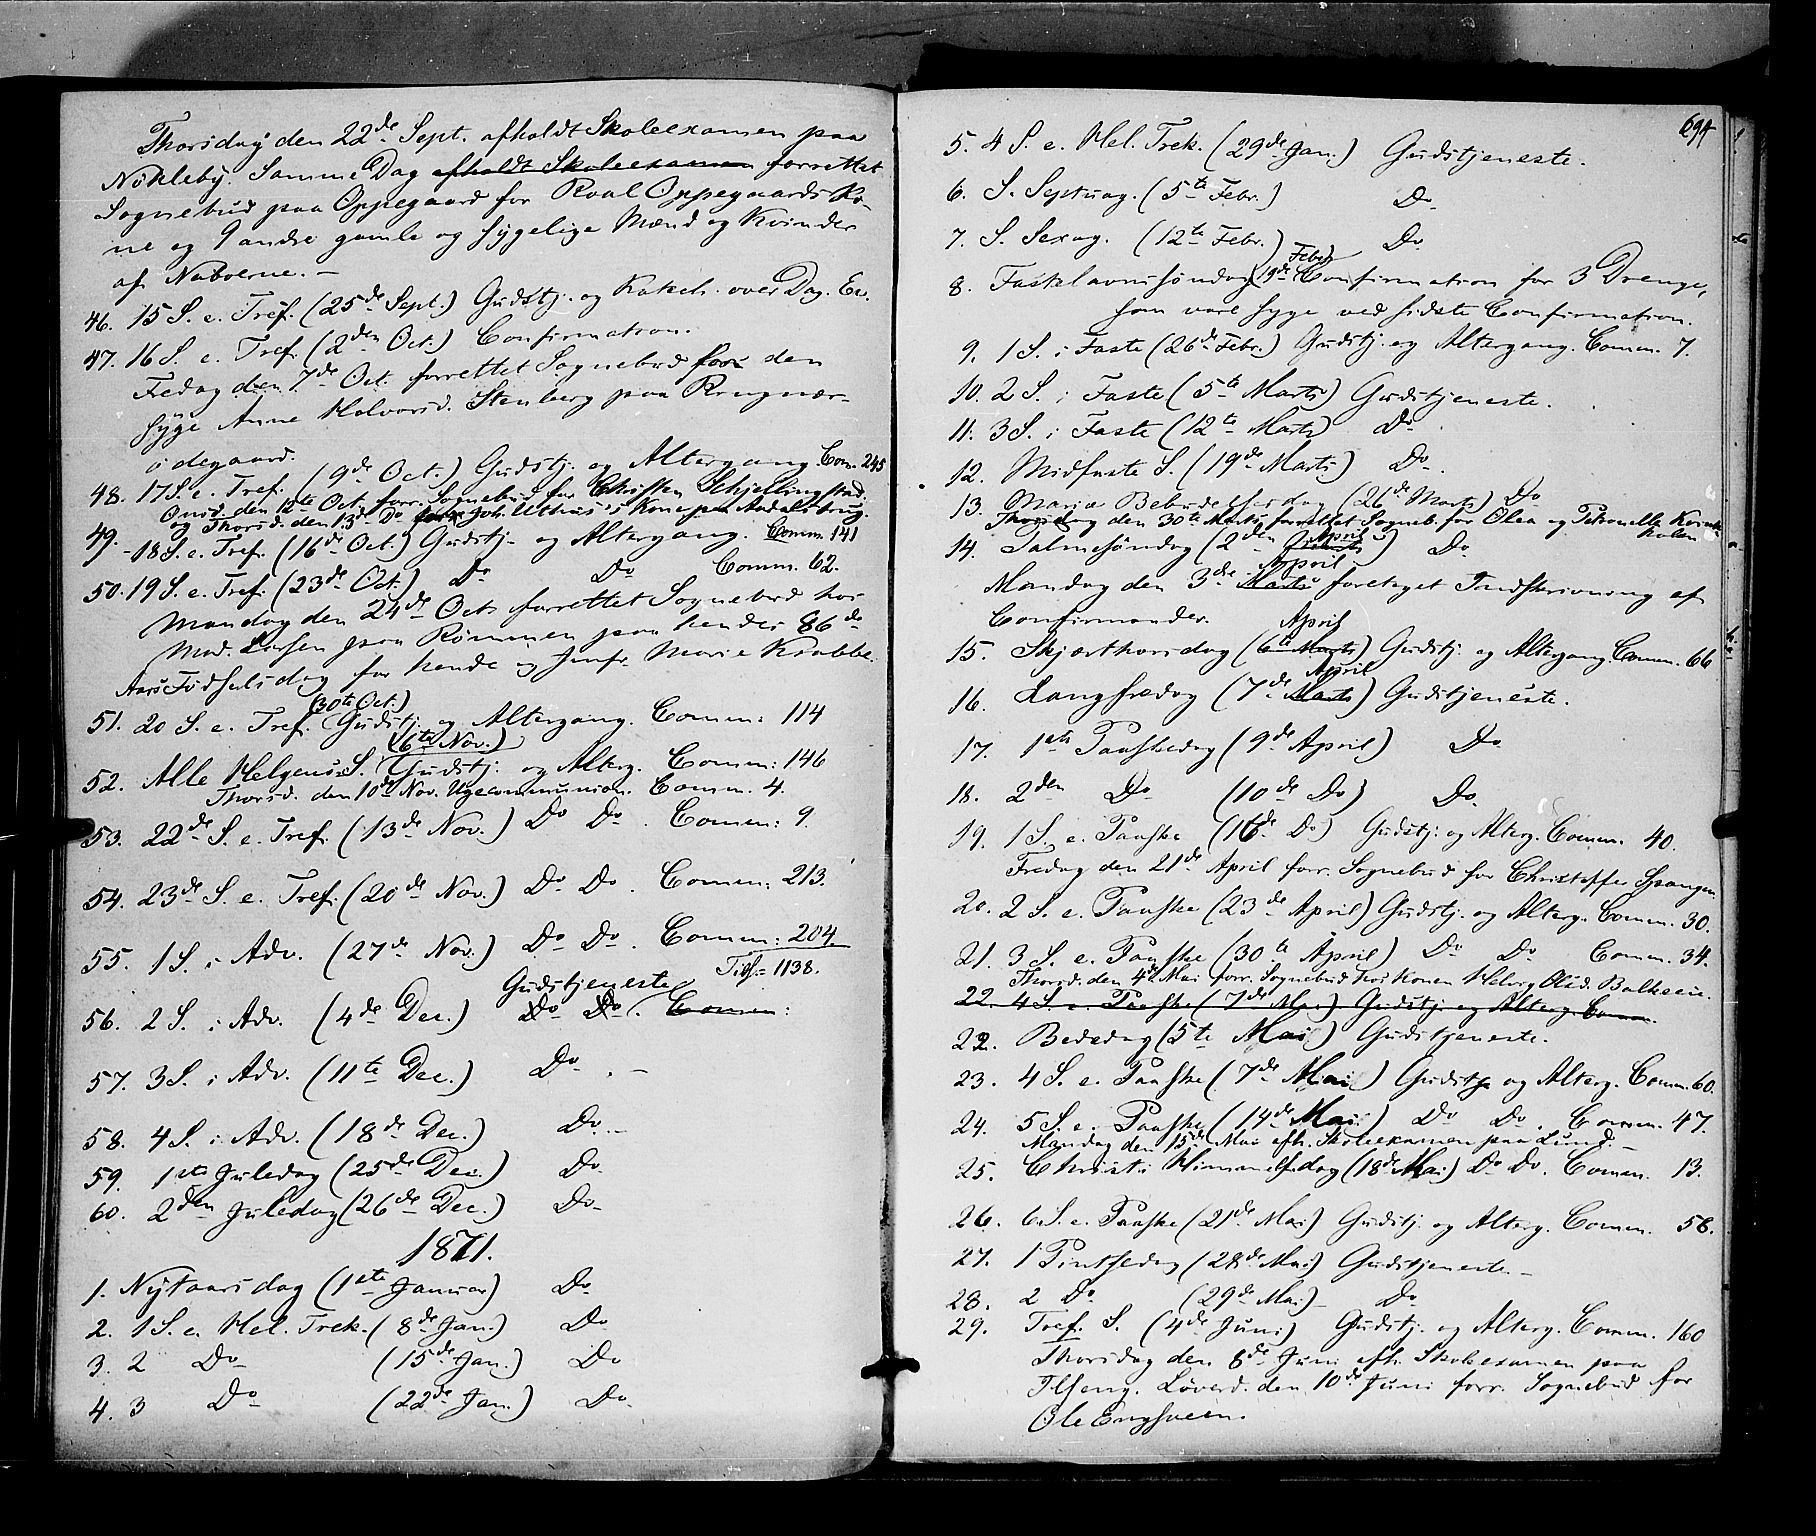 Thorsdag den 22de Sept. afholdt Skoleexamen paa
Nökleby. Samme Dag afholdt Skoleexamen forrettet
Sognebud paa Oppegaard for Roal Oppegaards Ko-
ne og 9 andre gamle og sygelige Mænd og Kvinder
af Naboerne. –
46. 15 S. e. Tref. (25de Sept.) Gudstj. og Katech. over Dag. Ev.
47. 16 S. e. Tref. (2den Oct.) Confirmation.
Fredag den 7de Oct. forrettet Sognebud for den
syge Anne Halvorsd. Stenberg paa
ödegaard.
48. 17 S. e. Tref. (9de Oct.) Gudstj. og Altergang. Com. 245
Onsd. den 12te Oct. forr. Sognebud for Christen Schjellingstad.
og Thorsd. den 13de Do Joh. Uthus's Kone paa
49. 18 S. e. Tref. (16de Oct.) Gudstj. og Altergang. Comm. 141
50. 19 S. e. Tref. (23de Oct.) Do Do Comm. 62.
Mandag den 24de Oct. forrettet Sognebud hos
Mad. Larsen paa Rommen paa hendes 86de
Aars Födselsdag for hende og Jomfr. Marie Krabbe.
(30te Oct.)
51. 20 S. e. Tref. Gudstj. og Altergang. Comm: 114
(6te Nov.)
52. Alle Helgens S. Gudstj. og Alterg. Comm: 146
Thorsd. den 10de Nov. Ugecommunion. Comm. 4.
53. 22de S. e. Tref. (13de Nov.) Do Do. Comm: 9.
54. 23de S. e. Tref. (20de Nov.) Do Do. Comm: 213.
55. 1 S. i Adv. (27de Nov.) Do Do. Comm: 204
Tils: = 1138.
Gudstjeneste
56. 2 S. i Adv. (4de Dec.) Do Do. Comm:
57. 3 S. i Adv. (11te Dec.) Do. –
58. 4 S. i Adv. (18de Dec.) Do. –
59. 1ste Juledag (25de Dec.) Do.
60. 2den Juledag (26de Dec.) Do.
1871.
1. Nytaarsdag (1ste Januar) Do
2. 1 S. e. Hel. Trek. (8de Jan.) Do
3. 2 Do (15de Jan.) Do
4. 3 Do (22de Jan.) Do.
694
5. 4 S. e. Hel. Trek. (29de Jan.) Gudstjeneste.
6. S. Septuag. (5te Febr.) Do.
7. S. Sexag. (12te Febr.) Do
Febr.)
8. Fastelavnssöndag (19de Confirmation for 3 Drenge,
som vare syge ved sidste Confirmation.
9. 1 S. i Faste (26de Febr.) Gudstj. og Altergang. Comm. 7.
10. 2 S. i Faste (5te Marts) Gudstjeneste.
11. 3 S. i Faste (12te Marts) Do
12. Midfaste S. (19de Marts) Do.
13. Maria Bebudelsesdag (26de Marts) Do
Thorsdag den 30te Marts forrettet Sogneb. for Olea og Petronelle
April
14. Palmesöndag (2den Marts) Do
April
Mandag den 3die Marts foretaget Indskrivning af
Confirmander.
April
15. Skjærthorsdag (6te Marts) Gudstj. og Altergang. Comm. 66
April
16. Langfredag (7de Marts) Gudstjeneste.
17. 1ste Paaskedag (9de April) Do
18. 2den Do (10de Do) Do
19. 1 S. e. Paaske (16de Do) Gudstj. og Alterg. Comm. 40.
Fredag den 21de April forr. Sognebud for Christoffer Spangen.
20. 2 S. e. Paaske (23de April) Gudstj. og Alterg. Comm. 30.
21. 3 S. e. Paaske (30te April) Do Do Comm. 34.
Thorsd. den 4de Mai forr. Sognebud hos Konen Helvig Olsd.
22. 4 S. e. Paaske (7de Mai) Gudstj. og Alterg. Comm.
22. Bededag (5te Mai) Gudstjeneste.
23. 4 S. e. Paaske (7de Mai) Gudstj. og Alterg. Comm. 60.
24. 5 S. e. Paaske (14de Mai) Do Do. Comm. 47.
Mandag den 15de Mai afh. Skoleexamen paa Lund. –
25. Christi Himmelfsdag (18de Mai) Do Do. Comm. 13.
26. 6 S. e. Paaske (21de Mai) Gudstj. og Alterg. Comm. 58.
27. 1 Pintsedag (28de Mai) Gudstjeneste. –
28. 2 Do (29de Mai) Do
29. Tref. S. (4de Juni) Gudstj. og Alterg. Comm. 160
Thorsdag den 8de Juni afh. Skoleexamen paa
Ilseng. Löverd. den 10de Juni forr. Sognebud for
Ole Engsveen.